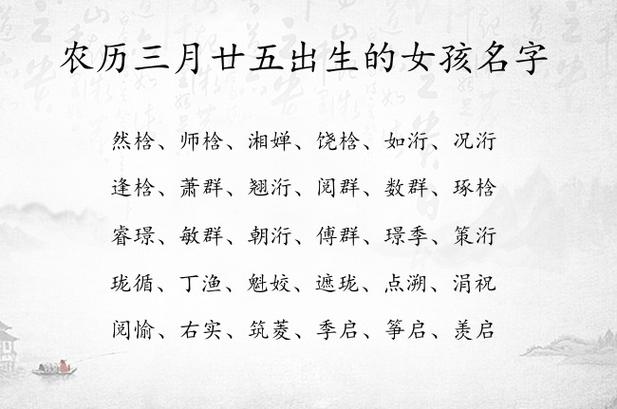 农历三月廿五出生的女孩名字
然桧、师桧、湘婵、饶桧、如洐、况洐
逢桧、萧群、翘洐、阅群、数群、琢桧
睿璟、敏群、朝洐、傅群、璟季、策洐
珑循、丁渔、魁姣、遮珑、点溯、涓祝
阅愉、右实、筑菱、季启、筝启、羡启